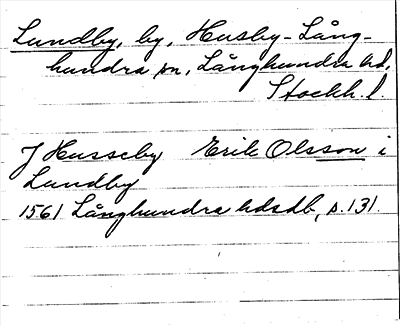 Lundby, by, Husby-Lång-
hundra sn, Långhundra hd,
Stockh. l.
J Husseby Erik Olsson i
Lundby
1561 Långhundra hdsdb, s. 131.